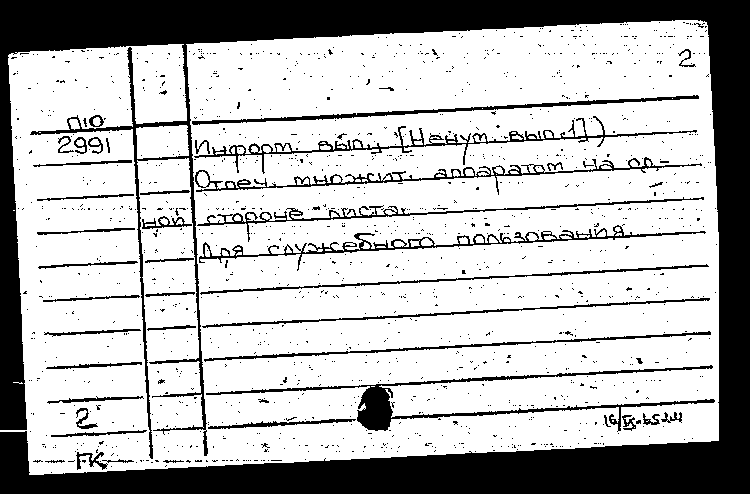 2
П10
2991
Информ. вып., [Ненум. вып. 1]).
Отпеч. множит. аппаратом на од-
ной стороне листа.
Для служебного пользования.
2
ГК